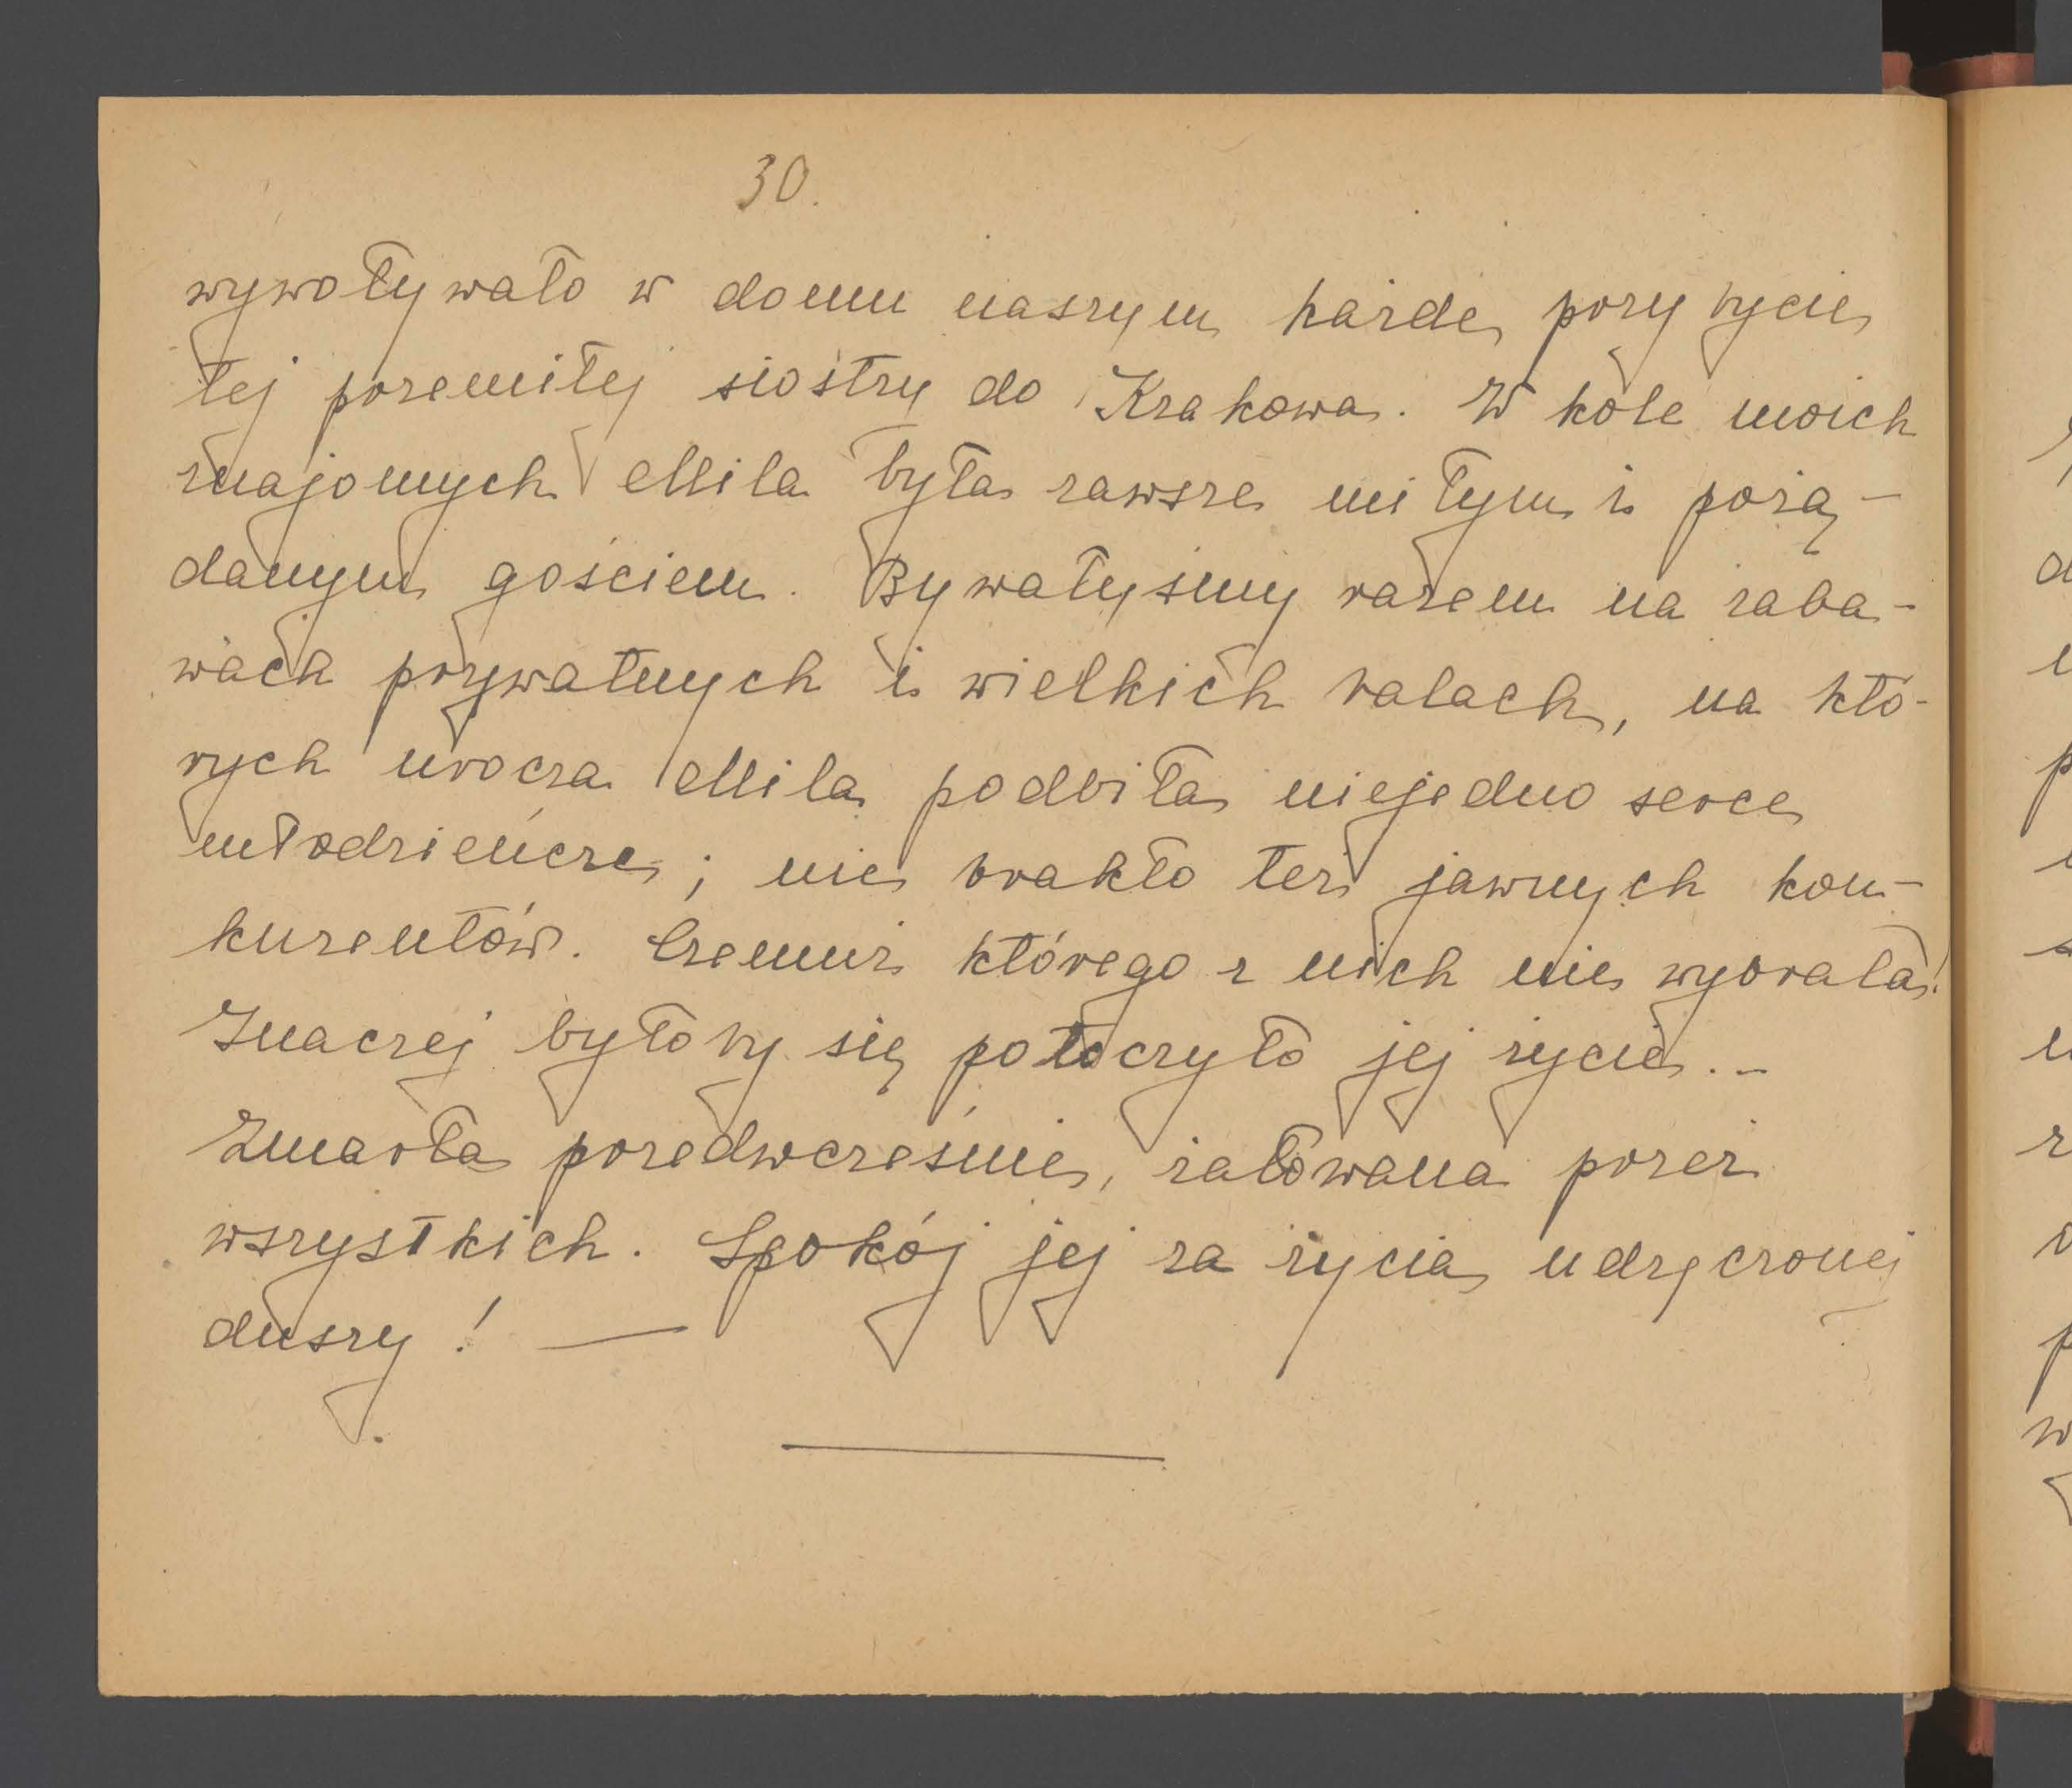 30.
wywoływało w domu naszym każde przybycie
tej przemiłej siostry do Krakowa. W kole moich
znajomych Mila była zawsze miłym i pożą-
danym gościem. Bywałyśmy razem na zaba-
wach prywatnych i wielkich balach, na któ-
rych urocza Mila podbiła niejedno serce
młodzieńcze; nie brakło też jawnych kon-
kurentów. Czemuż którego z nich nie wybrała!
Inaczej byłoby się potoczyło jej życie. -
Zmarła przedwcześnie, żałowana przez
wszystkich. Spokój jej za życia udręczonej
duszy! —